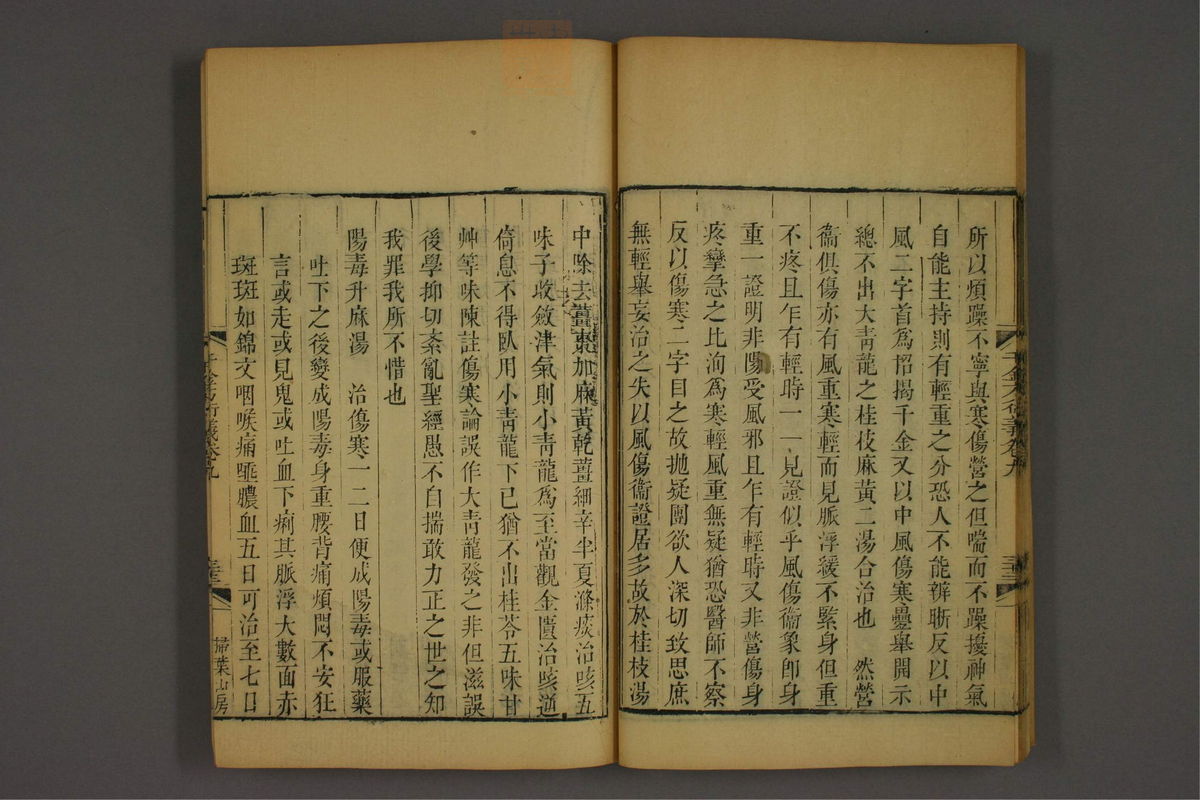 所以煩躁不寧與寒傷營之但喘而不躁擾神氣
自能主持則有輕重之分恐人不能辨晰反以中
風二字首爲招揭千金又以中風傷寒疊舉開示
總不出大靑龍之桂枝麻黃二湯合治也　然營
衞俱傷亦有風重寒輕而見脈浮緩不緊身但重
不疼且乍有輕時一一見證似乎風傷衞象卽身
重一證明非陽受風邪且乍有輕時又非營傷身
疼攣急之比洵爲寒輕風重無疑猶恐醫師不察
反以傷寒二字目之故拋疑團欲人深切致思庶
無輕舉妄治之失以風傷衞證居多故於桂枝湯
中除去薑棗加麻黃乾薑細辛半夏滌痰治咳五
味子收斂津氣則小靑龍爲至當觀金匱治咳逆
倚息不得臥用小靑龍下已猶不出桂苓五味甘
艸等味陳註傷寒論誤作大靑龍發之非但滋誤
後學抑切紊亂聖經愚不自揣敢力正之世之知
我罪我所不惜也
陽毒升麻湯　治傷寒一二日便成陽毒或服藥
吐下之後變成陽毒身重腰背痛煩悶不安狂
言或走或見鬼或吐血下痢其脈浮大數面赤
斑斑如錦文咽喉痛唾膿血五日可治至七日
千金方衍義卷九
掃葉山房